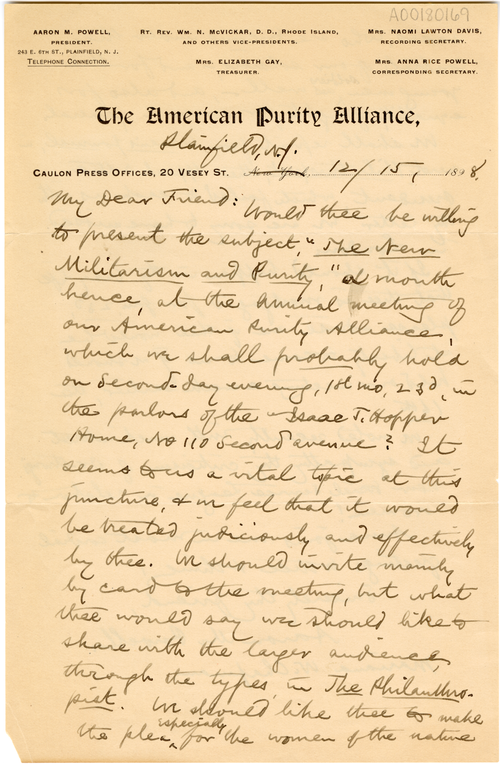 A00180169
AARON M. POWELL,
PRESIDENT.
243 E. 6TH ST., PLAINFIELD, N. J.
TELEPHONE CONNECTION.
RT. REV. WM. N. MCVICKAR, D. D., RHODE ISLAND,
AND OTHERS VICE-PRESIDENTS.
MRS. ELIZABETH GAY,
TREASURER.
MRS. NAOMI LAWTON DAVIS,
RECORDING SECRETARY.
MRS. ANNA RICE POWELL,
CORRESPONDING SECRETARY.
The American Purity Alliance,
Plainfield, N.J.
CAULON PRESS OFFICES, 20 VESEY ST. New York, 12/15, 1898.
My Dear Friend: Would thee be willing
to present the subject, "The New
Militarism and Purity," a month
hence, at the annual meeting of
our American Purity Alliance,
which we shall probably hold
on Second-day evening, 1st mo, 23d, in
the parlors of the Isaac T. Hopper
Home, No 110 Second avenue? It
seems to us a vital topic at this
juncture, & we feel that it would
be treated judiciously and effectively
by thee. We should invite mainly
by card to the meeting, but what
thee would say we should like to
share with the larger audience,
through the types, in The Philanthro-
pist. We should like thee to make
the plea especially for the women of the native